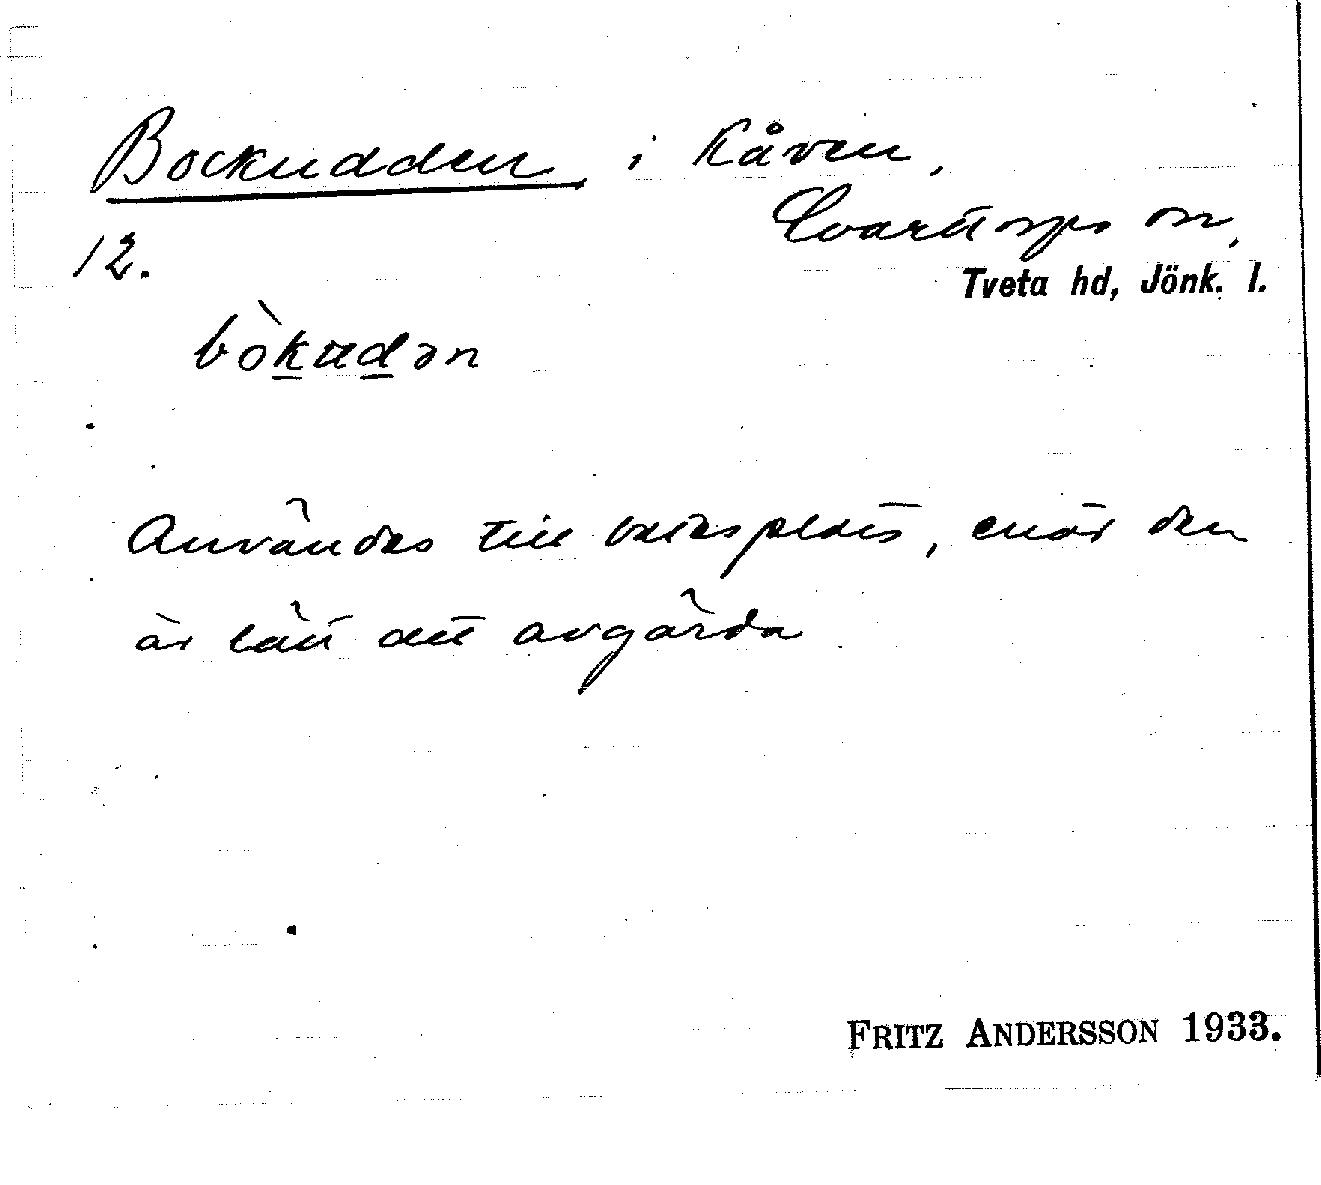 Bockudden i Kåven,
Svarttorps sn,
12.
Tveta hd, Jönk. l.
bòkudən
Användes till betesplats, enär den
är lätt att avgärda
FRITZ ANDERSSON 1933.